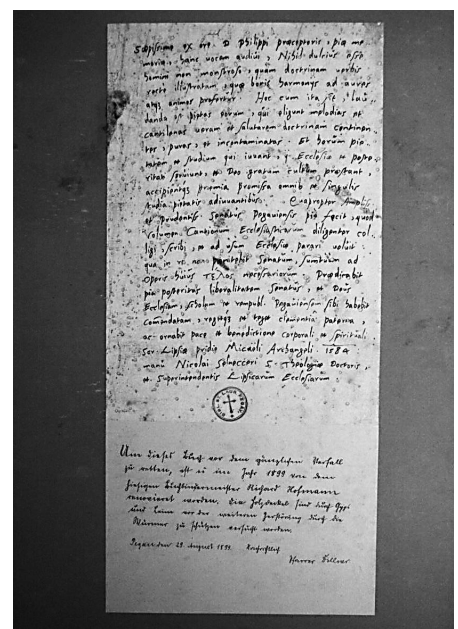 Sæpissime ex ore D Philippi præceptoris, piæ me
moriæ, hanc vocem audivi, Nihil dulcius esse
homini non monstroso, quam doctrinam verbis
recte illustratam, quæ bonis harmonijs ad aures
atqꝫ animos profertur. Hoc cum ita sit, lau
danda est pietas eorum, qui eligunt melodias et
cantilenas veram et salutarem doctrinam continen
tes, puras, et incontaminatas. Et horum pie
tatem et studium qui iuvant, Ecclesiæ et poste
ritati serviunt, et Deo gratum cultum præstant,
accipientqꝫ præmia promissa omnib et singulis
studia pietatis adiuvantibus. Quapropter Ampliss
et prudentiss Senatus Pegaviensis pie facit, quod
volumen Cantionum Ecclesiasticarum diligenter col
ligi, scribi, et ad usum Ecclesiæ parari voluit
qua in re non pœnitebit Senatum, sumtuum ad
Operis huius ΤΕΛΟΣ necessariorum. Prædicabit
pia posteritas liberalitatem Senatus, et Deus
Ecclesiam, scholam et rempubl. Pegaviensem sibi habebit
comendatam, regetqꝫ et teget clementia paterna,
ac ornabit pace et benedictione corporali et spirituali.
Scr. Lipsiæ pridie Micaeli Archangeli 1584
manu Nicolai Selnecceri S. Theologiæ Doctoris,
et Superintendentis Lipsicarum Ecclesiarum.
Um dieses Buch vor dem gänzlichen Verfall
zu retten, ist es im Jahr 1899 von dem
hiesigen Buchbindermeister Richard Hofmann
renoviert worden. Die Holzdeckel sind durch Gyps
und Leim vor der weiteren Zerstörung durch die
Würmer zu schützen versucht worden.
Pegau den 29. August 1899.
Pfarrer